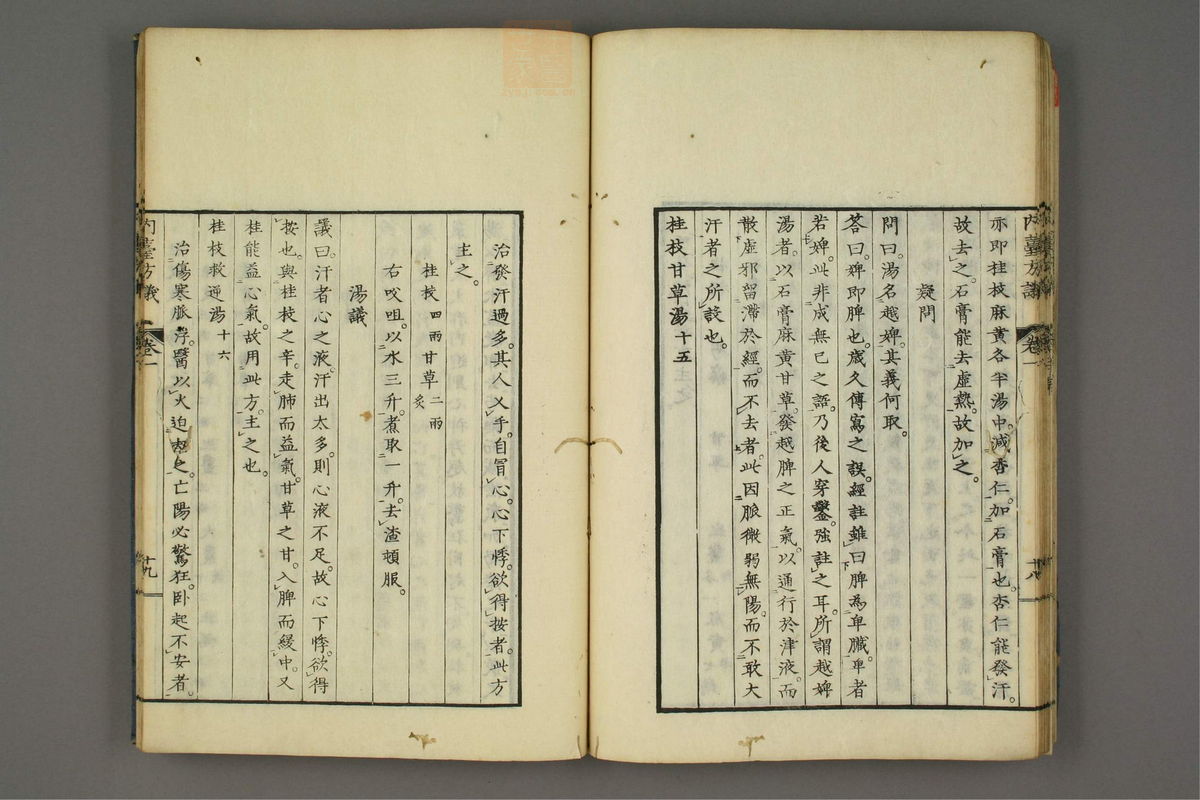 亦即桂枝麻黃各半湯中減杏仁加石膏也杏仁能發汗
故去之石膏能去虛熱故加之
疑問
問曰湯名越婢其義何取
答曰婢即脾也歲久傳寫之誤經註雖曰脾為卑臟卑者
若婢此非成無已之語乃後人穿鑿強註之耳所謂越婢
湯者以石膏麻黃甘草發越脾之正氣以通行於津液而
散虛邪留滯於經而不去者此因脈微弱無陽而不敢大
汗者之所設也
桂枝甘草湯十五
內臺方議
卷一
十八
治發汗過多其人乂手自冒心心下悸欲得按者此方
主之
桂枝四兩甘草二兩炙
右咬咀以水三升煮取一升去渣頓服
湯議
議曰汗者心之液汗出太多則心液不足故心下悸欲得
按也與桂枝之辛走肺而益氣甘草之甘入脾而緩中又
桂能益心氣故用此方主之也
桂枝救逆湯十六
治傷寒脈浮醫以火迫之亡陽必驚狂卧起不安者
內臺方議
卷一
十九